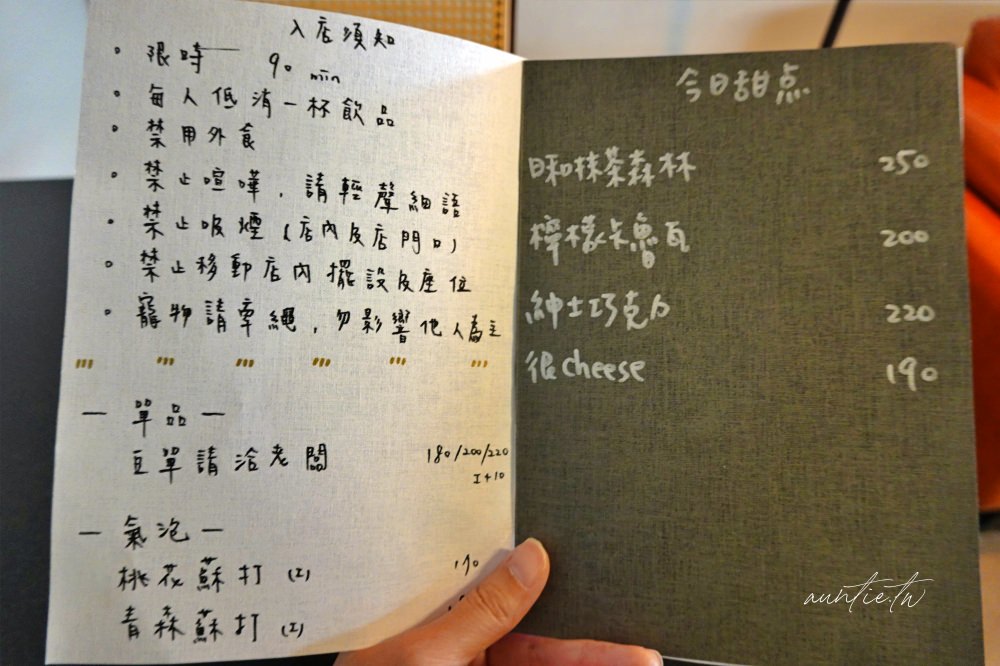 入店須知
• 限時 90 min
• 每人低消一杯飲品
• 禁用外食
• 禁止喧嘩，請輕聲細語
• 禁止吸煙（店內及店門口）
• 禁止移動店內擺設及座位
• 寵物請牽繩，勿影響他人為主
— 單品 —
豆單請洽老闆 180/200/220
I+10
— 氣泡 —
桃花蘇打 (I) 190
青森蘇打 (I)
今日甜点
日和抹茶森林 250
檸檬卡魯瓦 200
紳士巧克力 220
很cheese 190
auntie.tw